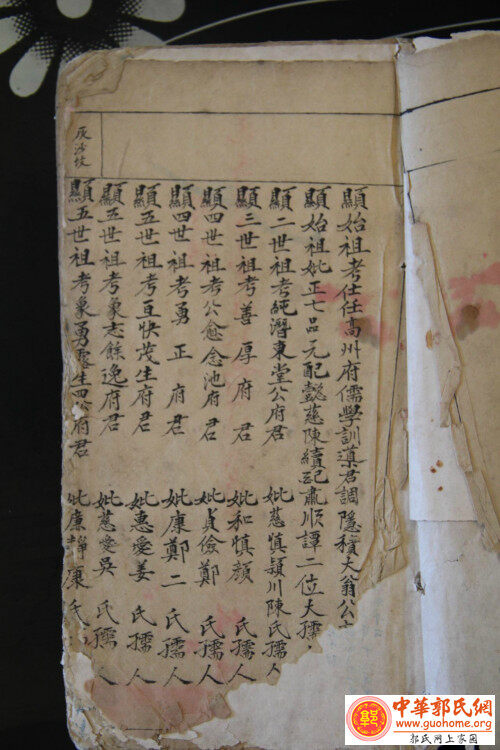 顯始祖考仕任高州府儒學訓導君調隱積大翁公
顯始祖妣正七品元配懿慈陳續配肅順譚二位夫孺
顯二世祖考純潛東堂公府君 妣慈慎潁川陳氏孺人
顯三世祖考善厚府君 妣和慎顏氏孺人
顯四世祖考公愈念池府君 妣貞儉鄭氏孺人
顯四世祖考勇正府君 妣康鄭二氏孺人
顯五世祖考亙快茂生府君 妣惠愛姜氏孺人
顯五世祖考象志餘逸府君 妣慈愛吳氏孺人
灰沙坟
顯五世祖考象勇 生 府君 妣廉靜康氏
中華郭氏網
www.guohome.org
郭氏网上家园